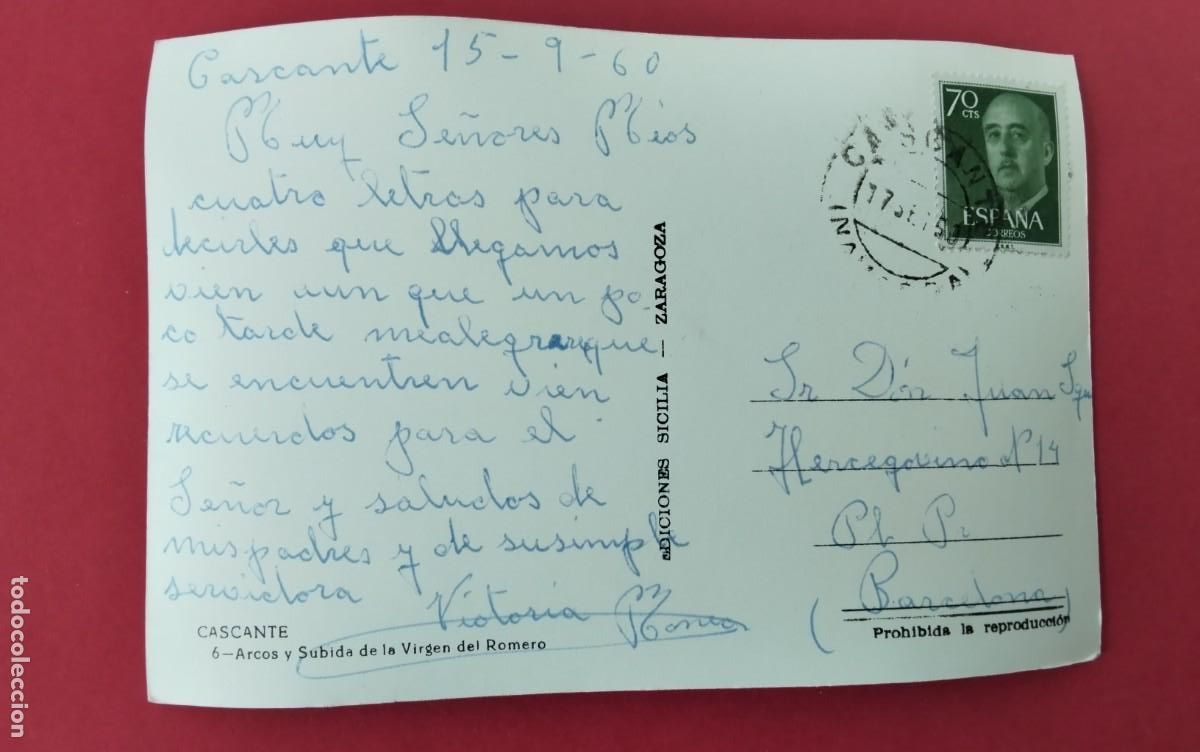 Cascante 15-9-60
Muy Señores Mios
cuatro letras para
decirles que llegamos
vien aun que un po-
co tarde mealegrareque
se encuentren vien
recuerdos para el
Señor y saludos de
mis padres y de susimple
servidora Victoria
CASCANTE
6—Arcos y Subida de la Virgen del Romero
EDICIONES SICILIA — ZARAGOZA
70
CTS
ESPAÑA
CORREOS
CASCANTE
Sr Don Juan
Hercegovino Nº 14
Pl Pr
(Barcelona)
Prohibida la reproducción
todocoleccion